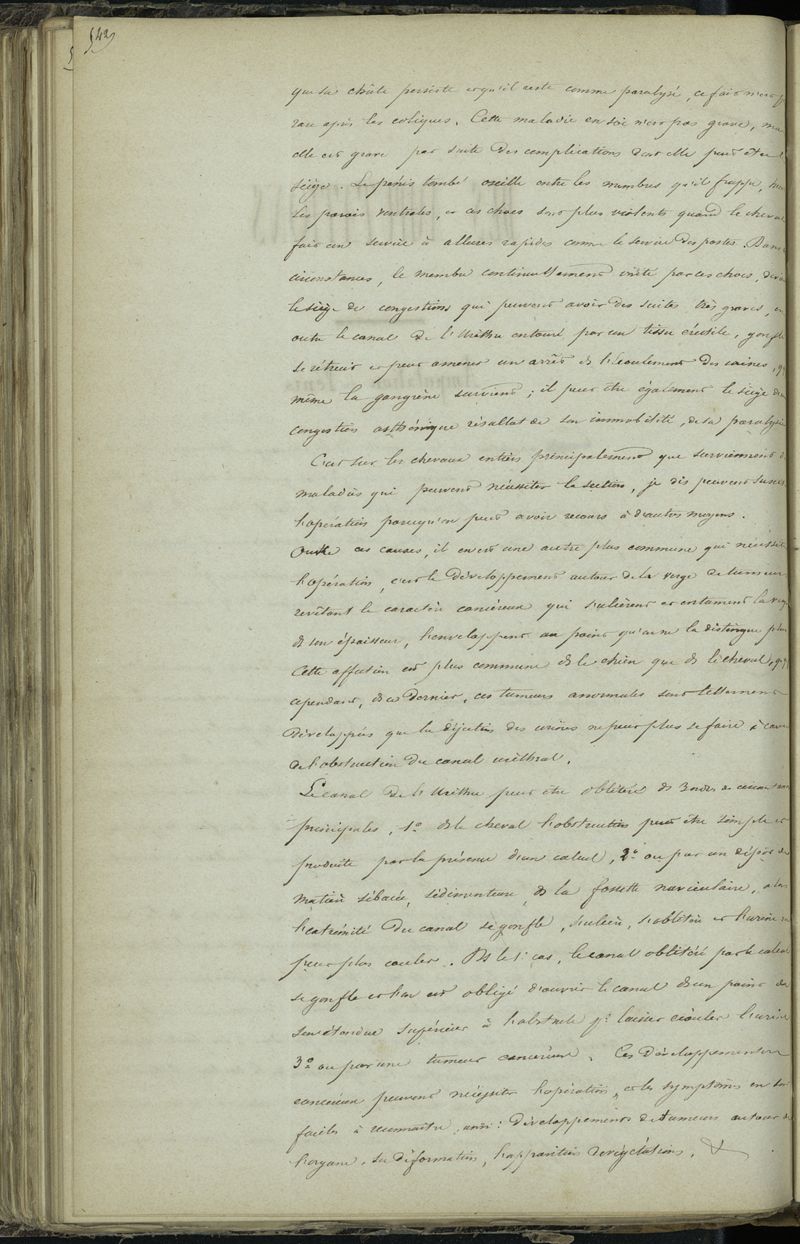 542
que sa chûte persiste et qu'il reste comme paralysé, ce fait n'est p
rare après les coliques. Cette maladie en soi n'est pas grave, ma
elle est grave par suite des complications dont elle peut être le
siège. Le pénis tombé oscille entre les membres qu'il frappe,
les parois ventrales, et ces chocs sont plus violents quand le cheval
fait un service à allures rapides comme le service des postes. Dans
circonstances, le membre continuellement irrité par ces chocs, devi
le siège de congestions qui peuvent avoir des suites très graves, en
outre le canal de l'Urèthre entouré par un tissu érectile, gonfle
se rétrécit et peut amener un arrêt de l'écoulement des urines,
même la gangrène survient; il peut être également le siège d'une
congestion asthénique résultat de son immobilité, de sa paralysie
C'est sur les chevaux entiers principalement que surviennent
maladies qui peuvent nécessiter la section, je dis peuvent
l'opération parcequ'on peut avoir recours à d'autres moyens.
Outre ces causes, il en est une autre plus commune qui nécessite
l'opération, c'est le développement autour de la verge de tumeurs
revêtant le caractère cancéreux qui s'ulcèrent et entament la verge
de son épaisseur, l'enveloppent au point qu'on ne la distingue plus
Cette affection est plus commune ds le chien que ds le cheval,
cependant, ds ce dernier, ces tumeurs anormales sont tellement
développées que la déjection des urines ne peut plus se faire à cause
de l'obstruction du canal uréthral.
Le canal de l'Urèthre peut être oblitéré ds 3 ordres de circonstances
principales, 1.º ds le cheval l'obstruction peut être simple et
produite par la présence d'un calcul, 2.º ou par un dépôt de
matière sébacée, sédimenteuse, ds la fossette naviculaire, alors
l'extrémité du canal se gonfle, s'ulcère, s'oblitère et l'urine ne
peut plus couler. Ds le 1er cas, le canal oblitéré par le calcul
se gonfle et l'on est obligé d'ouvrir le canal d'un point de
son étendue supérieur à l'obstacle pr laisser écouler l'urine
3.º ou par une tumeur cancéreuse. Ces développements
cancéreux peuvent nécessiter l'opération, et les symptômes en sont
faciles à reconnaître, ainsi: développements de tumeurs autour de
l'organe, sa déformation, l'apparition de végétations. &